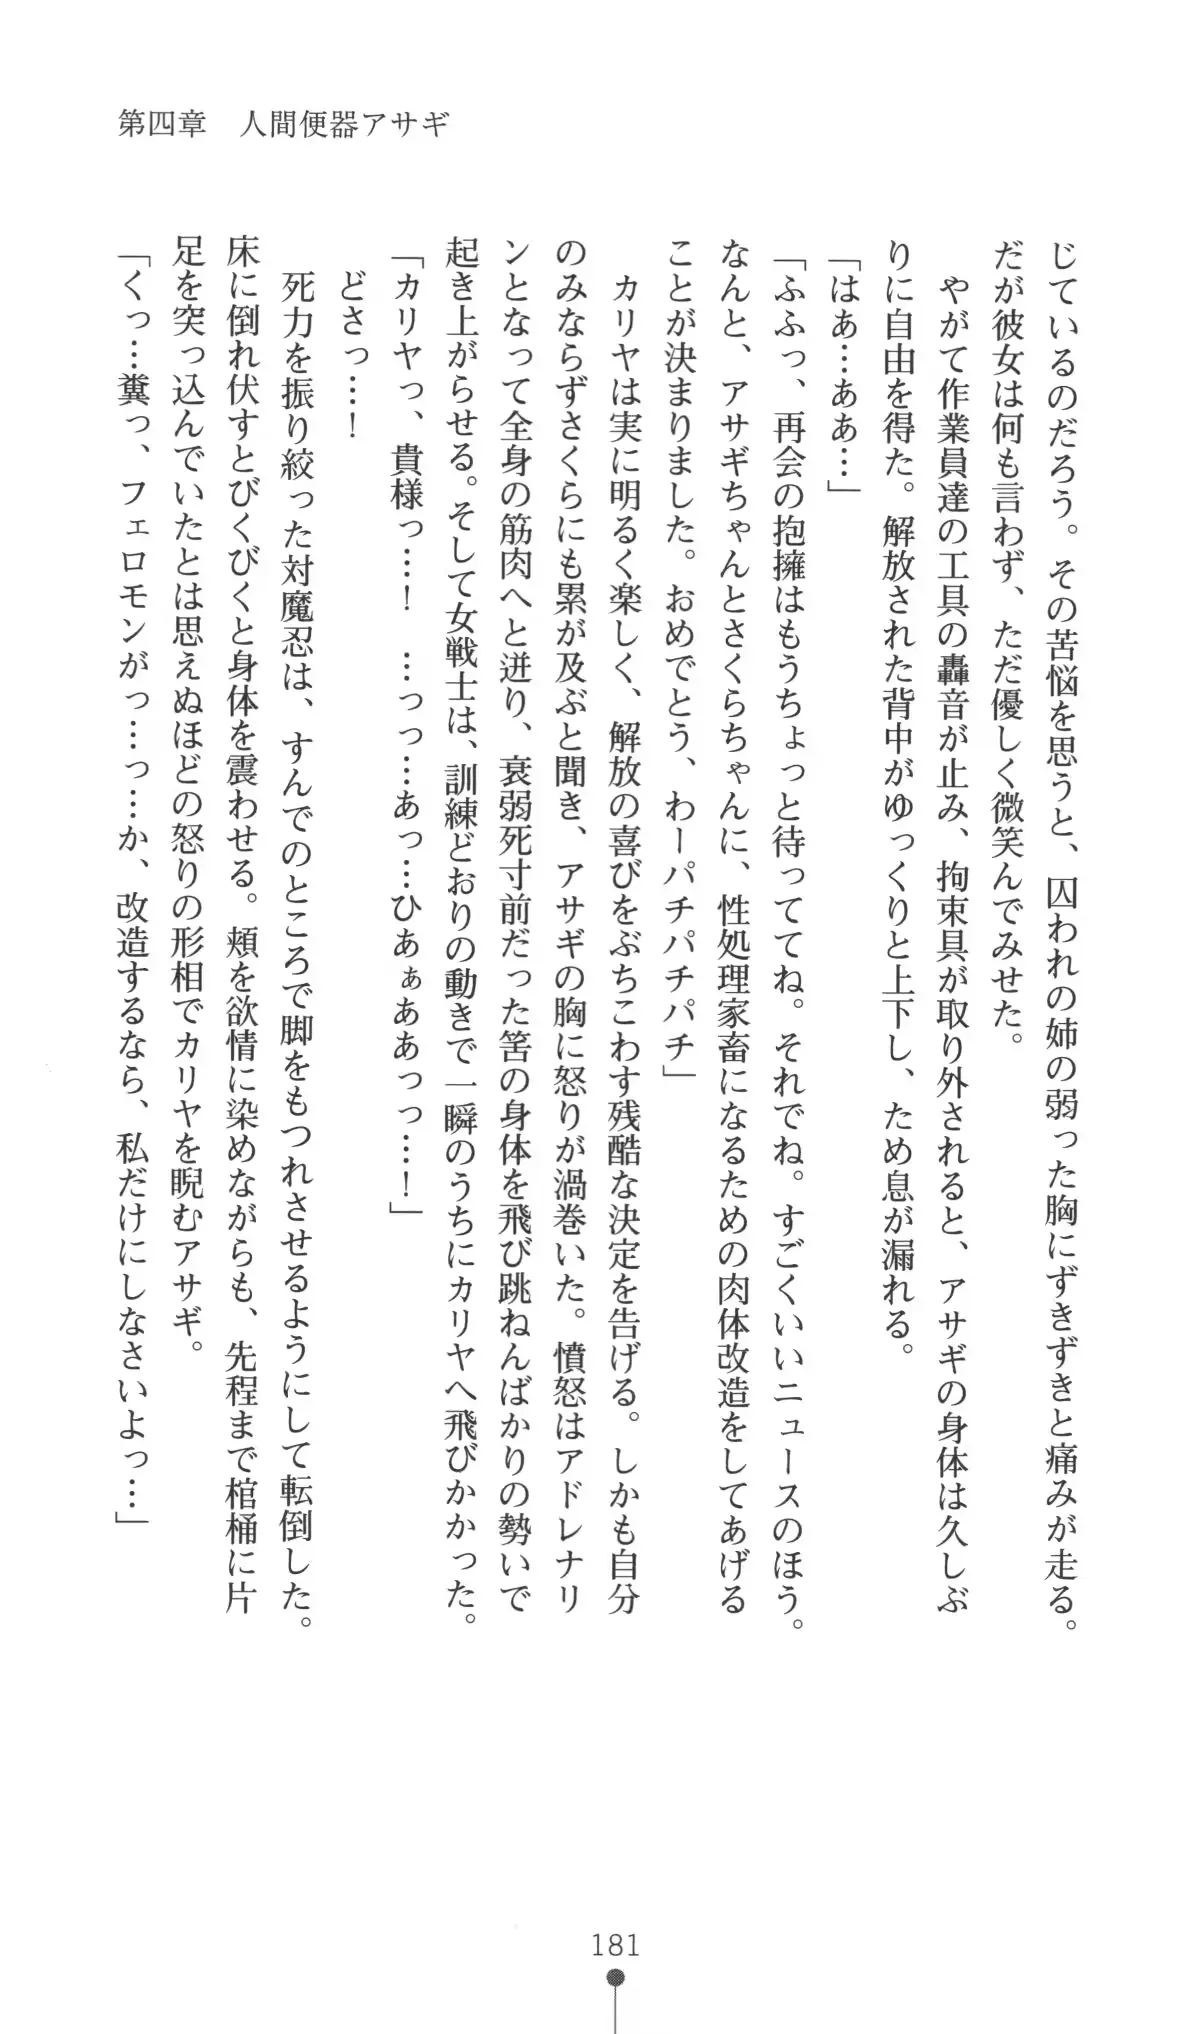 第四章　人間便器アサギ
じているのだろう。その苦悩を思うと、囚われの姉の弱った胸にずきずきと痛みが走る。
だが彼女は何も言わず、ただ優しく微笑んでみせた。
　やがて作業員達の工具の轟音が止み、拘束具が取り外されると、アサギの身体は久しぶ
りに自由を得た。解放された背中がゆっくりと上下し、ため息が漏れる。
「はあ…ああ…」
「ふふっ、再会の抱擁はもうちょっと待っててね。それでね。すごくいいニュースのほう。
なんと、アサギちゃんとさくらちゃんに、性処理家畜になるための肉体改造をしてあげる
ことが決まりました。おめでとう、わーパチパチパチ」
　カリヤは実に明るく楽しく、解放の喜びをぶちこわす残酷な決定を告げる。しかも自分
のみならずさくらにも累が及ぶと聞き、アサギの胸に怒りが渦巻いた。憤怒はアドレナリ
ンとなって全身の筋肉へと迸り、衰弱死寸前だった筈の身体を飛び跳ねんばかりの勢いで
起き上がらせる。そして女戦士は、訓練どおりの動きで一瞬のうちにカリヤへ飛びかかった。
「カリヤっ、貴様っ…！　…っっ…あっ…ひあぁああっっ…！」
　どさっ…！
　死力を振り絞った対魔忍は、すんでのところで脚をもつれさせるようにして転倒した。
床に倒れ伏すとびくびくと身体を震わせる。頬を欲情に染めながらも、先程まで棺桶に片
足を突っ込んでいたとは思えぬほどの怒りの形相でカリヤを睨むアサギ。
「くっ…糞っ、フェロモンがっ…っ…か、改造するなら、私だけにしなさいよっ…」
181